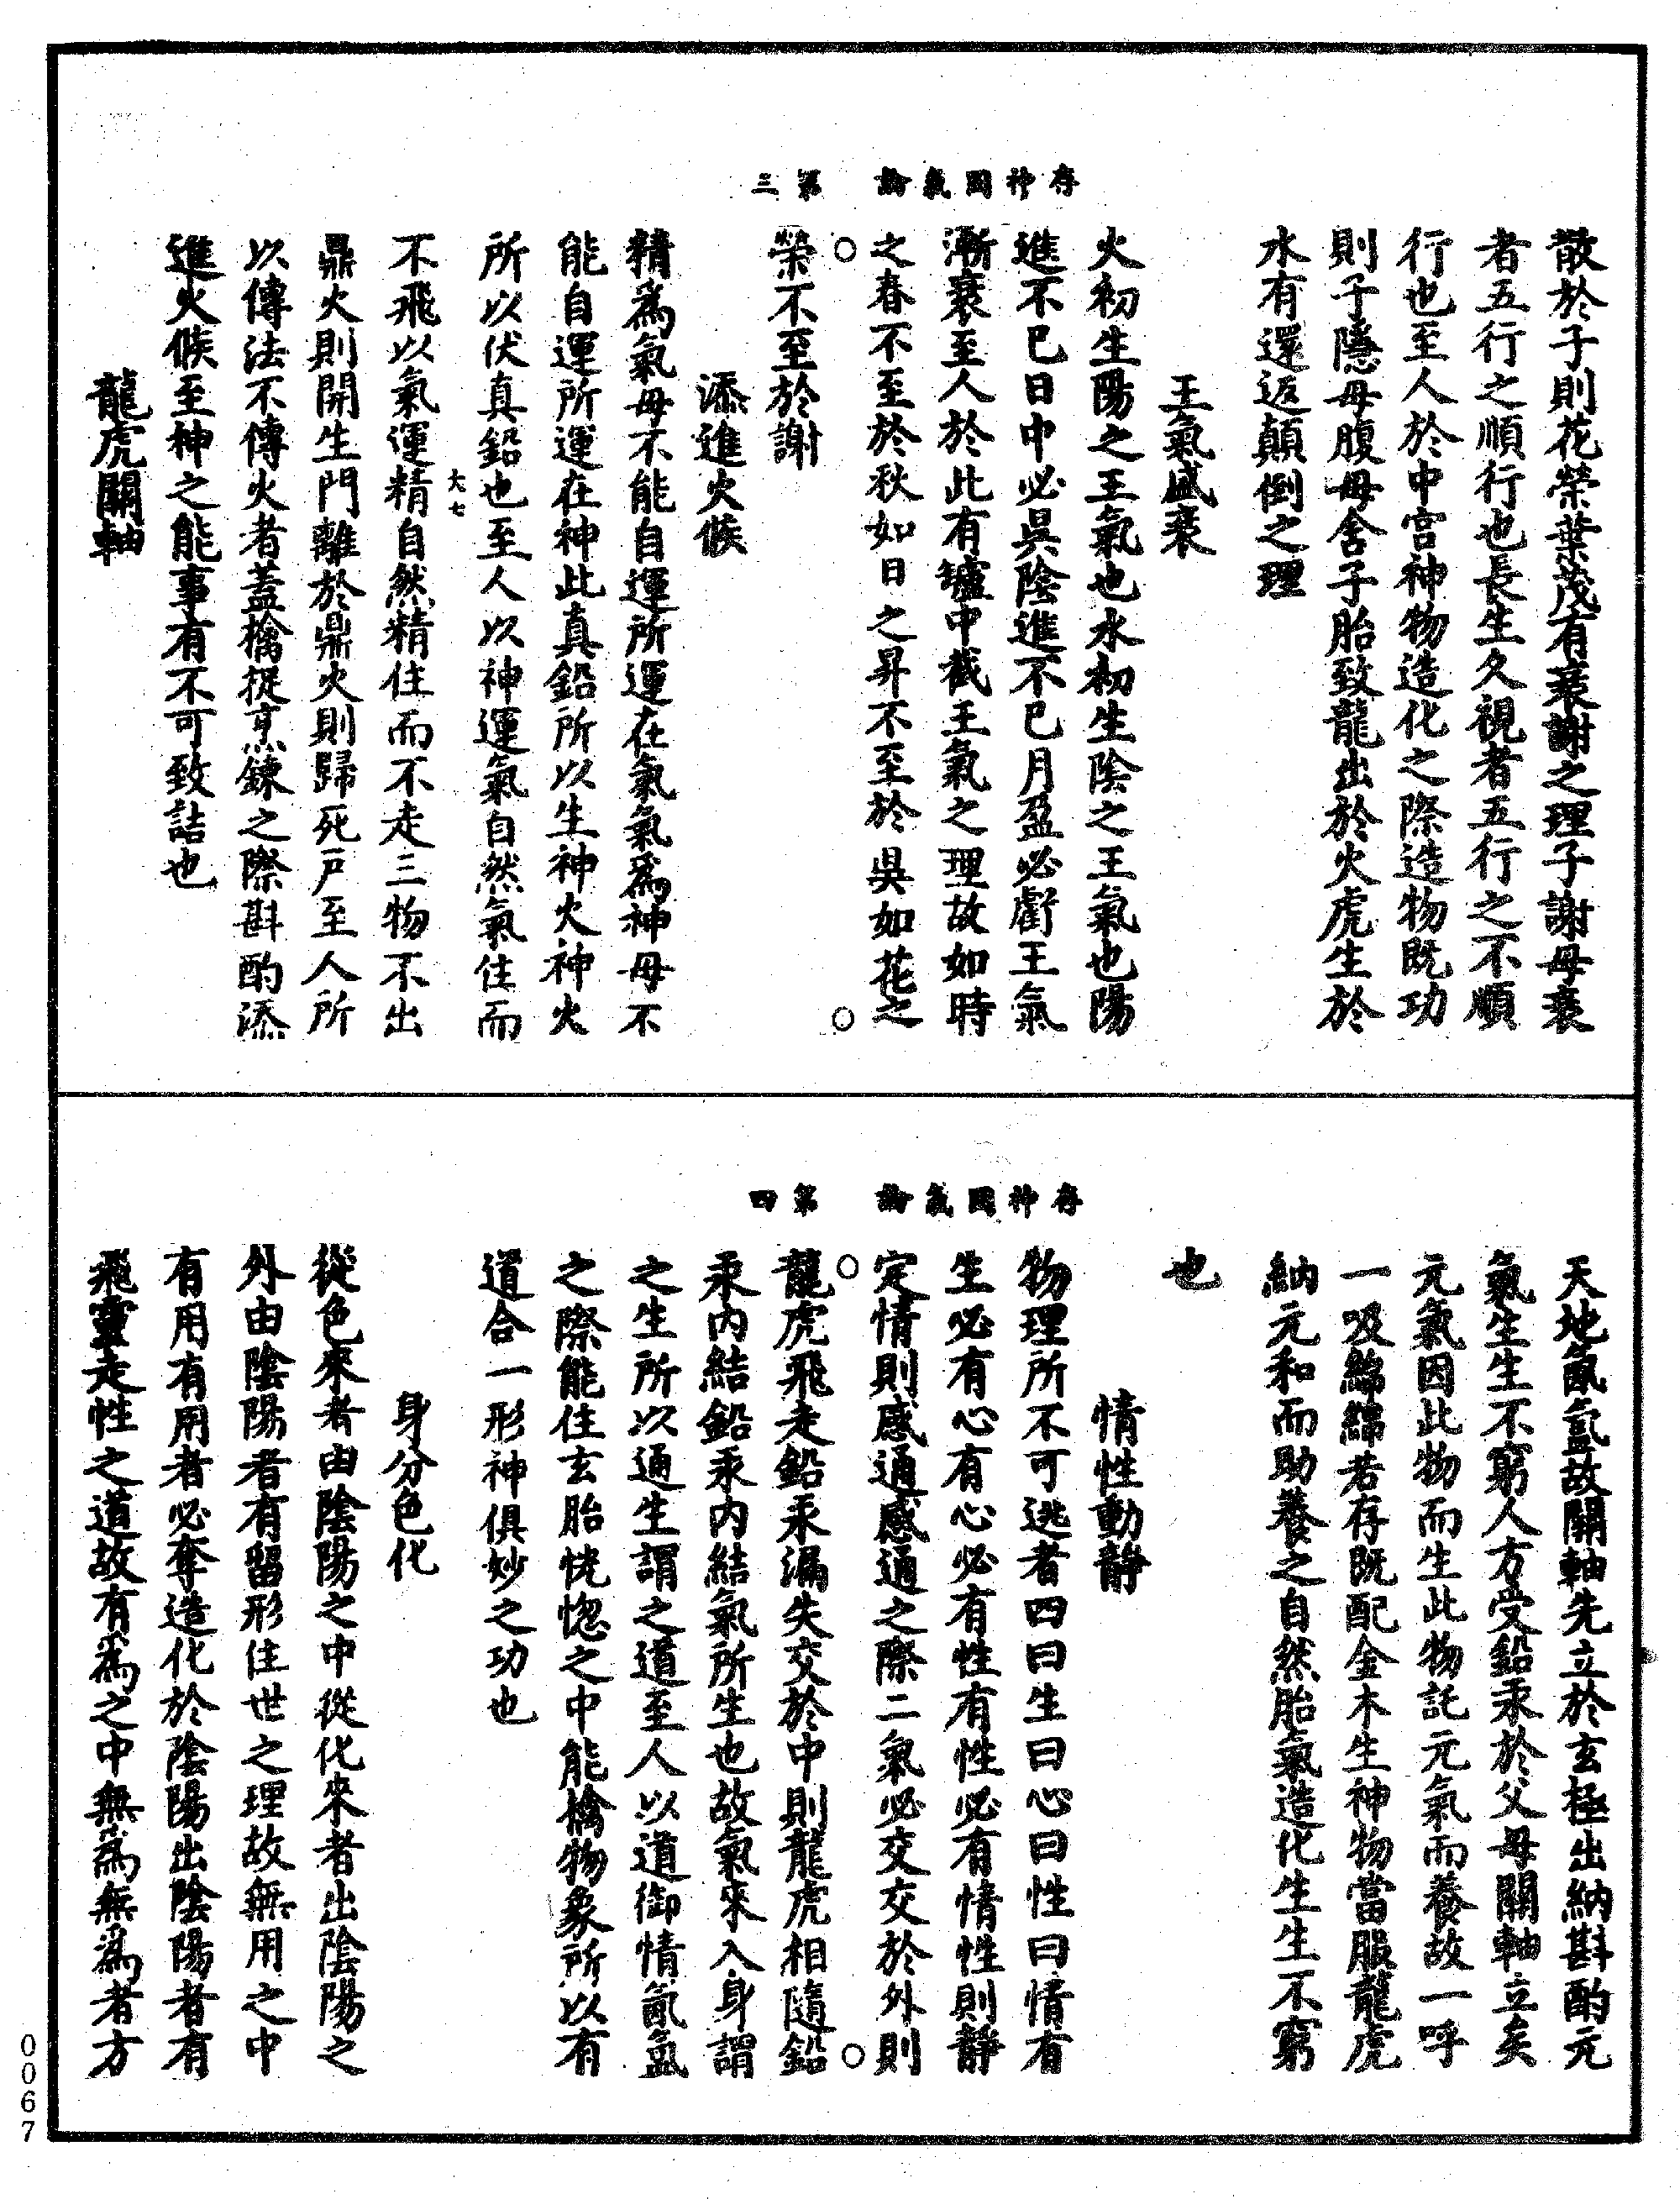 存神固氣論　第三
散於子則花榮葉茂有衰謝之理子謝母衰
者五行之順行也長生久視者五行之不順
行也至人於中宮神物造化之際造物既功
則子隱母腹母含子胎致龍出於火虎生於
水有還返顛倒之理
王氣盛衰
火初生陽之王氣也水初生陰之王氣也陽
進不已日中必昃陰進不已月盈必虧王氣
漸衰至人於此有罏中截王氣之理故如時
之春不至於秋如日之昇不至於昃如花之
榮不至於謝
添進火候
精爲氣母不能自運所運在氣氣爲神母不
能自運所運在神此真鉛所以生神火神火
所以伏真鉛也至人以神運氣自然氣住而
大七
不飛以氣運精自然精住而不走三物不出
鼎火則開生門離於鼎火則歸死戶至人所
以傳法不傳火者蓋擒捉烹鍊之際斟酌添
進火候至神之能事有不可致詰也
龍虎關軸
存神固氣論　第四
天地氤氳故關軸先立於玄極出納斟酌元
氣生生不窮人方受鉛汞於父母關軸立矣
元氣因此物而生此物託元氣而養故一呼
一吸綿綿若存既配金木生神物當服龍虎
納元和而助養之自然胎氣造化生生不窮
也
情性動靜
物理所不可逃者四曰生曰心曰性曰情有
生必有心有心必有性有性必有情性則靜
定情則感通感通之際二氣必交交於外則
龍虎飛走鉛汞漏失交於中則龍虎相隨鉛
汞內結鉛汞內結氣所生也故氣來入身謂
之生所以通生謂之道至人以道御情氤氳
之際能住玄胎恍惚之中能擒物象所以有
道合一形神俱妙之功也
身分色化
從色來者由陰陽之中從化來者出陰陽之
外由陰陽者有留形住世之理故無用之中
有用有用者必奪造化於陰陽出陰陽者有
飛靈走性之道故有爲之中無爲無爲者方
0067